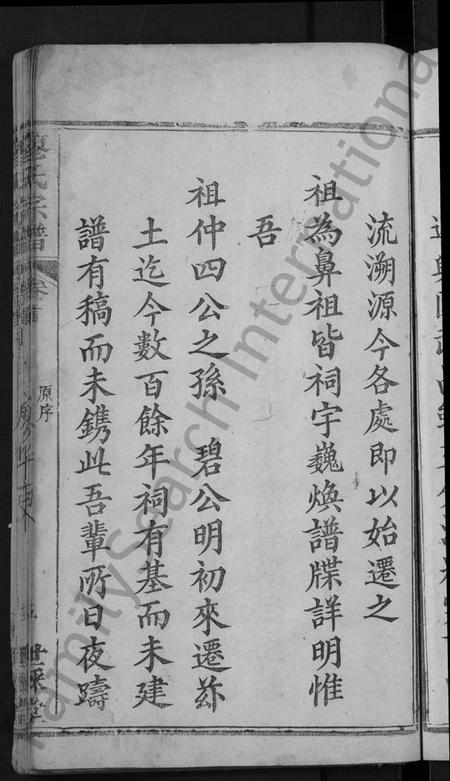 流溯源今各處即以始遷之
祖為鼻祖皆祠宇巍煥譜牒詳明惟
吾
祖仲四公之孫 碧公明初來遷茲
土迄今數百餘年祠有基而未建
譜有稿而未鐫此吾輩所日夜躊
氏宗譜
卷首
原序
FamilySearch International